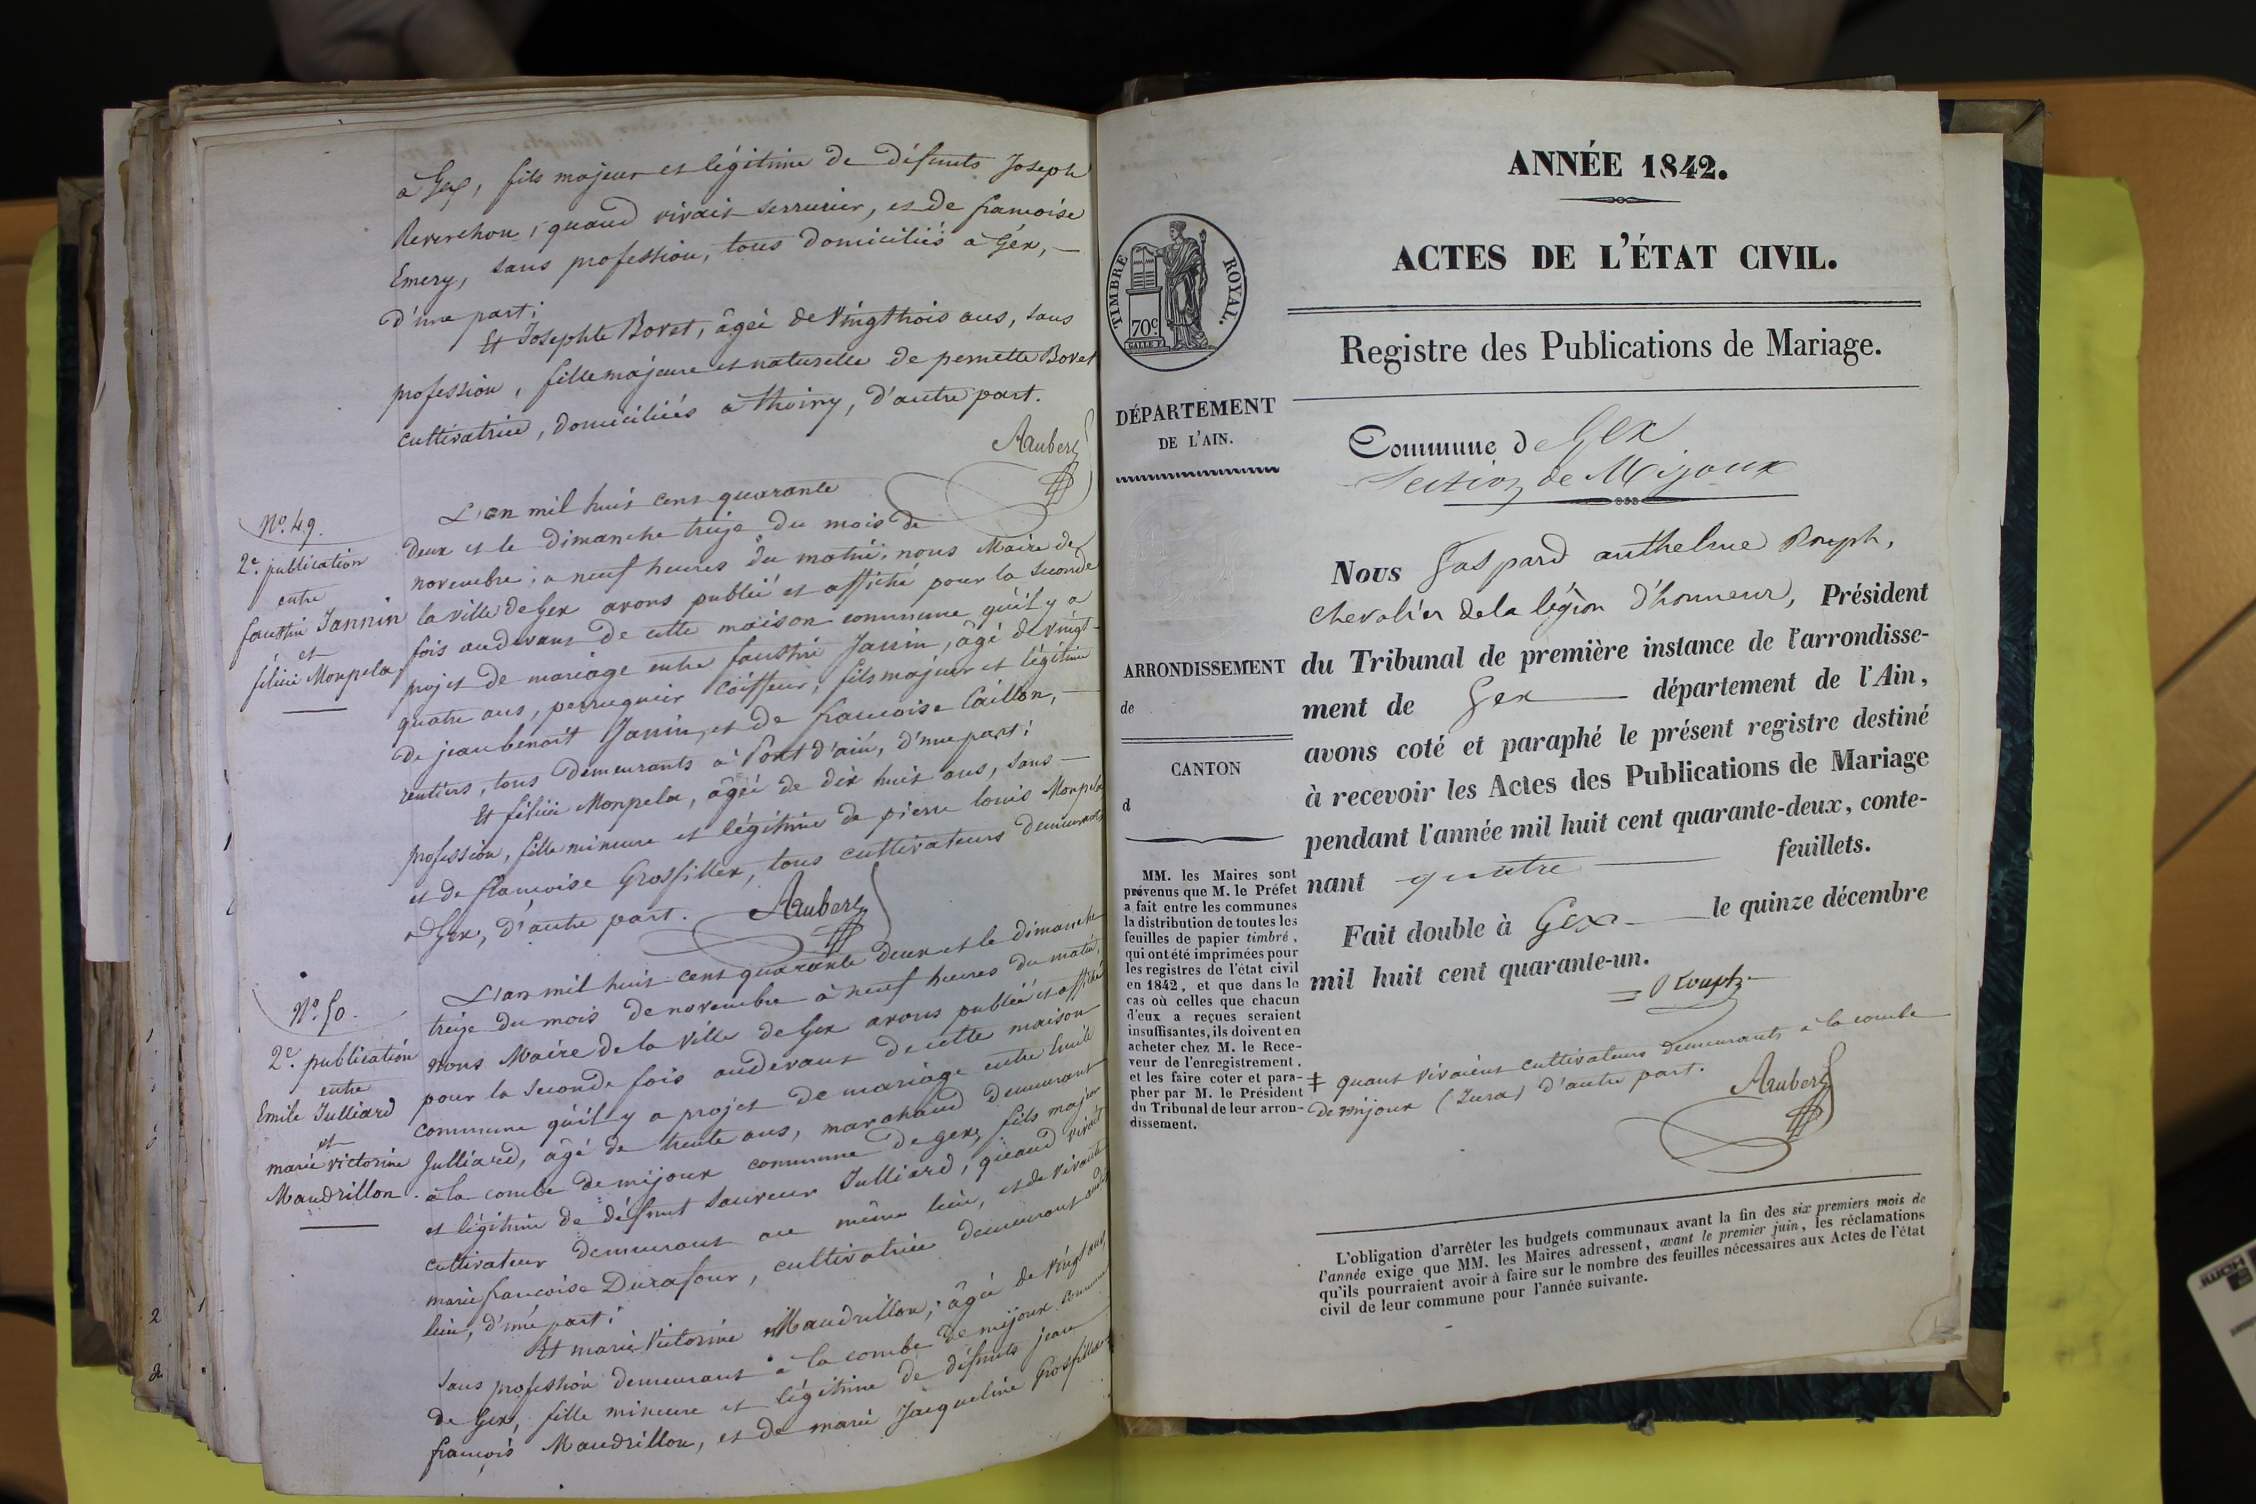 à Gex, fils majeur et légitime de défunts Joseph
Reverchon, quand vivait serrurier, et de francoise
Emery, sans profession, tous domiciliés à Gex, —
d'une part;
Et Josephte Bovet, âgée de vingt trois ans, sans
profession, fille majeure et naturelle de pernette Bovet
cultivatrice, domiciliées à Thoiry, d'autre part.
Aubert
N.º 49.
2.e publication
entre
faustin Jannin
et
félicie Monpela
L'an mil huit cent quarante
deux et le dimanche treize du mois de
novembre; à neuf heures du matin; nous Maire de
la ville de Gex avons publié et affiché pour la seconde
fois audevant de cette maison commune qu'il y a
projet de mariage entre faustin Janin, âgé de vingt-
quatre ans, perruquier coiffeur, fils majeur et légitime
de jean benoît Janin, et de francoise Caillon, —
rentiers, tous demeurants à Pont d'ain, d'une part;
Et félicie Monpela, âgée de dix huit ans, sans —
profession, fille mineure et légitime de pierre louis Monpela
et de francoise Grosfillex, tous cultivateurs demeurants
à Gex, d'autre part.
Aubert
N.º 50.
2.e publication
entre
Emile Julliard
et
marie victorine
Mandrillon.
L'an mil huit cent quarante deux et le dimanche
treize du mois de novembre à neuf heures du matin,
nous Maire de la ville de Gex avons publié et affiché
pour la seconde fois audevant de cette maison
commune qu'il y a projet de mariage entre Emile
Julliard, âgé de trente ans, marchand demeurant
à la combe de mijoux commune de gex, fils majeur
et légitime de défunt Sauveur Julliard, quand vivait
cultivateur demeurant au même lieu, et de vivante
marie francoise Durafour, cultivatrice demeurant audit
lieu, d'une part;
Et marie Victorine Mandrillon, âgée de vingt ans,
sans profession demeurant à la combe de mijoux commune
de Gex, fille mineure et légitime de défunts jean
françois Mandrillon, et de marie Jacqueline Grosfillex
ANNÉE 1842.
ACTES DE L'ÉTAT CIVIL.
TIMBRE ROYAL.
70c.
Registre des Publications de Mariage.
DÉPARTEMENT
DE L'AIN.
Commune de Gex
Section de Mijoux
ARRONDISSEMENT
de
CANTON
d
MM. les Maires sont
prévenus que M. le Préfet
a fait entre les communes
la distribution de toutes les
feuilles de papier timbré,
qui ont été imprimées pour
les registres de l'état civil
en 1842, et que dans le
cas où celles que chacun
d'eux a reçues seraient
insuffisantes, ils doivent en
acheter chez M. le Rece-
veur de l'enregistrement,
et les faire coter et para-
pher par M. le Président
du Tribunal de leur arron-
dissement.
Nous Gaspard anthelme Rouph,
chevalier de la légion d'honneur, Président
du Tribunal de première instance de l'arrondisse-
ment de Gex département de l'Ain,
avons coté et paraphé le présent registre destiné
à recevoir les Actes des Publications de Mariage
pendant l'année mil huit cent quarante-deux, conte-
nant quatre feuillets.
Fait double à Gex le quinze décembre
mil huit cent quarante-un.
Rouph
‡ quant vivaient cultivateurs demeurants à la combe
de mijoux (Jura) d'autre part.
Aubert
L'obligation d'arrêter les budgets communaux avant la fin des six premiers mois de
l'année exige que MM. les Maires adressent, avant le premier juin, les réclamations
qu'ils pourraient avoir à faire sur le nombre des feuilles nécessaires aux Actes de l'état
civil de leur commune pour l'année suivante.